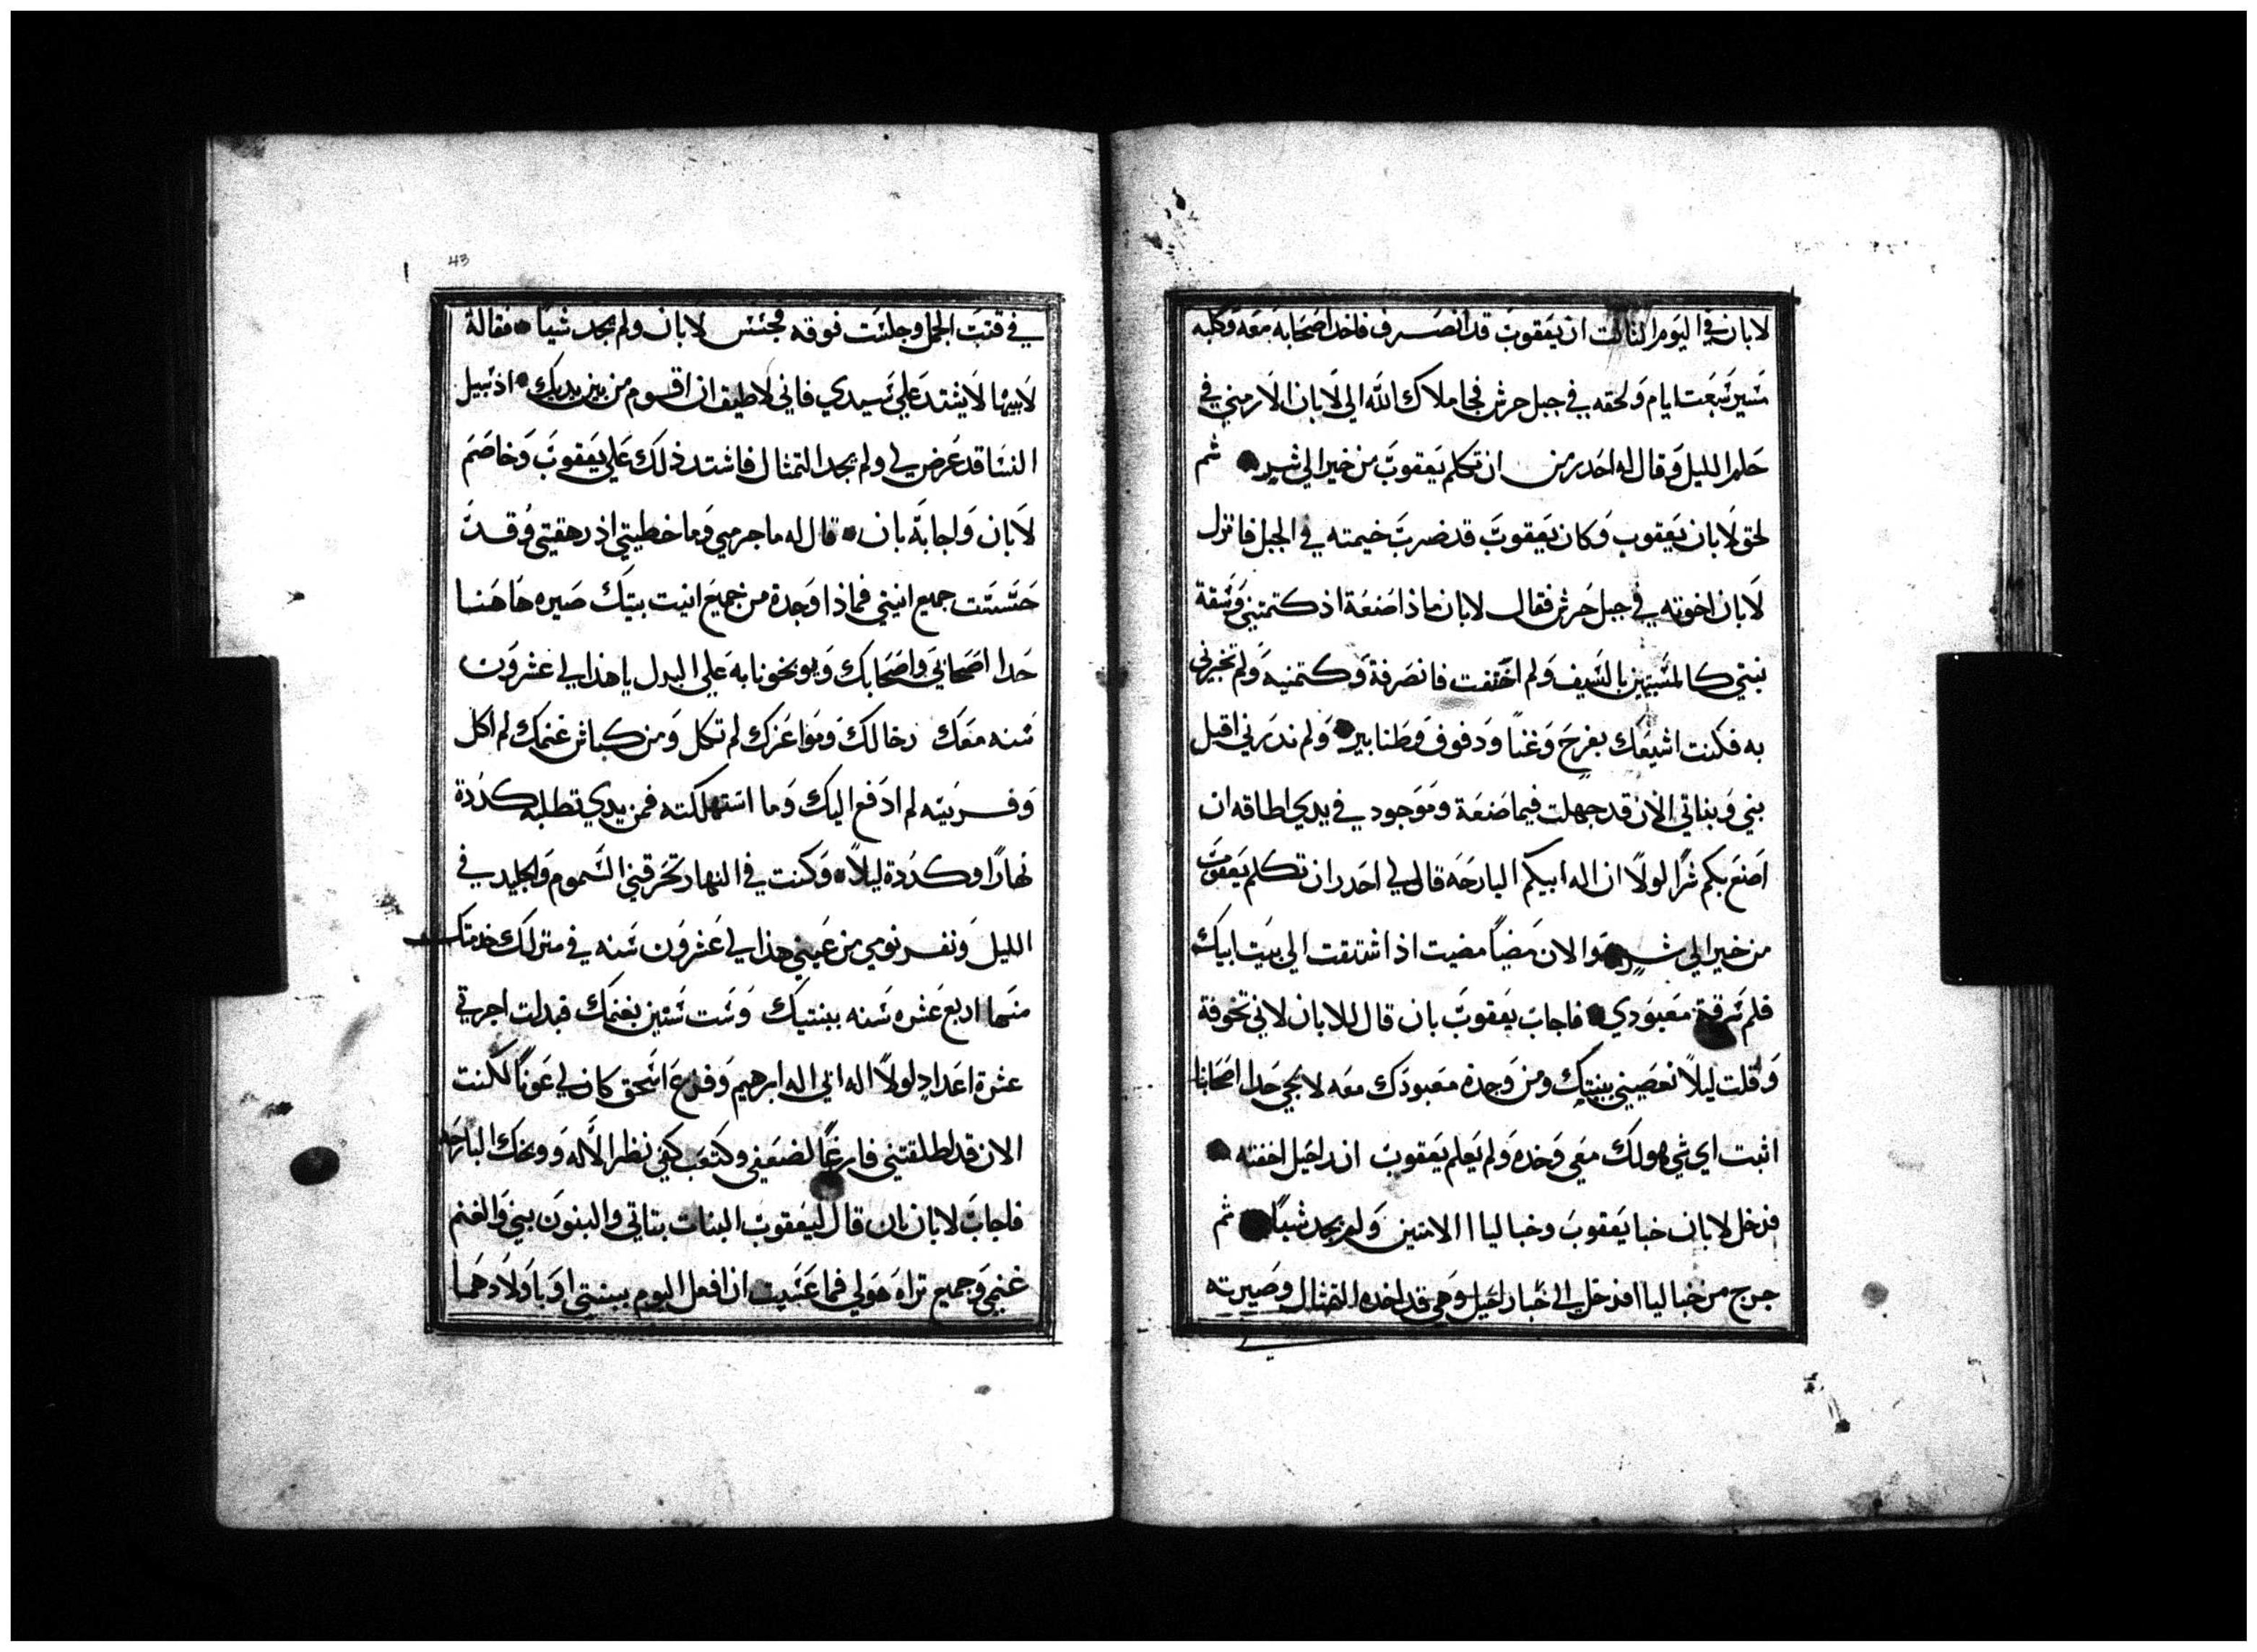 لابان في اليوم الثالث ان يعقوب قد انصرف فاخد اصحابه معه وكلبه
مسير سبعت ايام ولحقه في جبل حرش فجا ملاك الله الى لابان الارمني في
حلم الليل وقال له احدر من ان تكلم يعقوب من خير الي شر ثم
لحق لابان يعقوب وكان يعقوب قد ضرب خيمته في الجبل فانزل
لابان اخوته في جبل حرش فقال لابان ماذا اصنعة اذ كتمتني وسقة
بنتي كالمسبيين بالسيف ولم اختفت فانصرفة وكتمنيه ولم تخبرني
به فكنت اشيعك بفرح وغنا ودفوف وطنابير ولم تدرني اقبل
بني وبناتي الان قد جهلت فيما صنعة وموجود في يدي اطاقه ان
اصنع بكم شرا لولا ان اله ابيكم البارحه قال لي احدر ان تكلم يعقوب
من خير الي شر والان مضيا مضيت اذ اشتقت الي بيت ابيك
فلم سرقة معبودي فاجاب يعقوب بان قال للابان لاني تخوفة
وقلت ليلا تعصيني ببنتيك ومن وجدة معبودك معه لا يحي حدا اصحابنا
اثبت اي شي هو لك معي وخده ولم يعلم يعقوب ان راحيل اخفته
فدخل لابان خبا يعقوب وخبا ليا الامتين ولم يجد شيا ثم
خرج من خبا ليا فدخل الي خبا راحيل وهي قد اخده التمثال وصيرته
43
في قتبت الجمل وجلست فوقه فجسس لابان ولم يجد شيا فقالة
لابيها لا يشتد علي سيدي فاني لا طيق ان اقوم من بين يديك اذ سبيل
النسا قد عرض لي ولم يجد التمثال فاشتد ذلك علي يعقوب وخاصم
لابان واجابة بان قال له ما جرمي وما خطيتي اذ رهقتي وقد
حتستت جميع انيتي فماذا وجدة من جميع انيت بيتك صيره هاهنا
حدا اصحابي واصحابك ويوبخونا به علي البدل ياهذا لي عشرون
سنه معك رخالك ومواعزك لم تكل ومن كباش غنمك لم اكل
وفريسه لم ادفع اليك وما استهلكته فمن يدي تطلبه كددة
نهارا وكددة ليلا وكنت في النهار تحرقني السموم والجليد في
الليل ونفر نومي من عيني هذا لي عشرون سنه في منزلك خدمتك
منها اربع عشره سنه ببنتيك وست سنين بغنمك فبدلت اجرتي
عشرة اعداد لولا اله ابي اله ابرهيم وفزع اسحق كان لي عونا لكنت
الان قد لطلقتني فارغا لضعفي وكتعب كفي نظر الاله ووبخك البارحه
فاجاب لابان بان قال ليعقوب البنات بناتي والبنون بني والغنم
غنمي وجميع تراه هولي فما عسيت ان افعل اليوم ببنتي او باولادهما